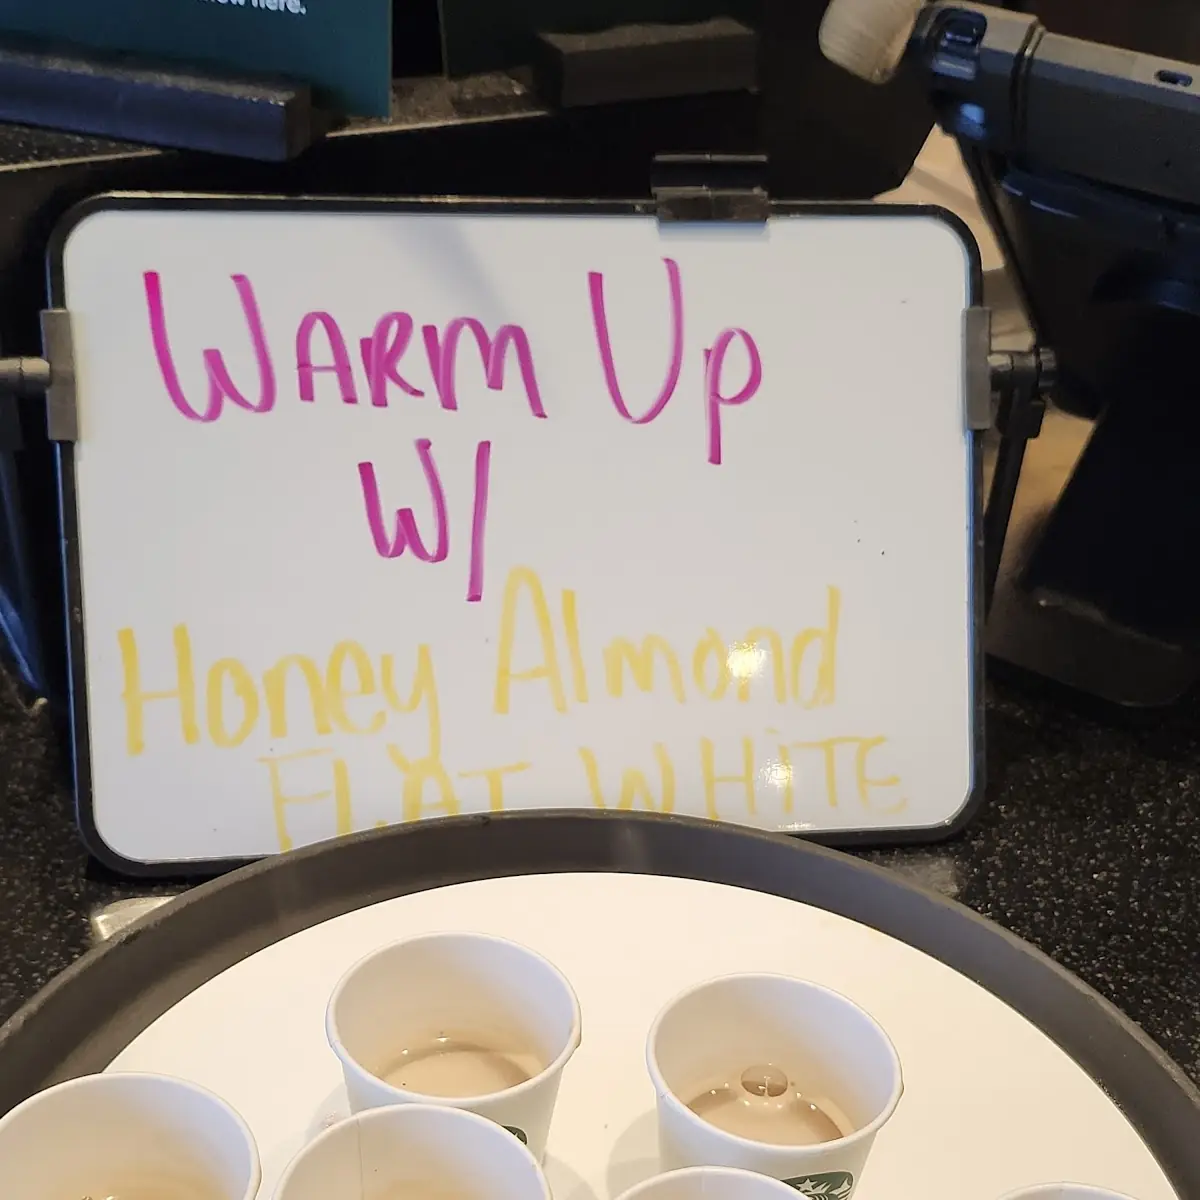 here.
WARM Up
W/
Honey Almond
FLAT WHiTE